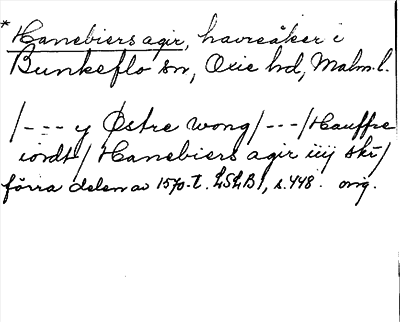 * Hanebiers agir, havreåker i
Bunkeflo sn, Oxie hd, Malm.l.
/--- y Østre wong/---/Hauffre
iordt/ Hanebiers agir iiij skr/
förra delen av 1570-t. LSLB1, s.448. orig.